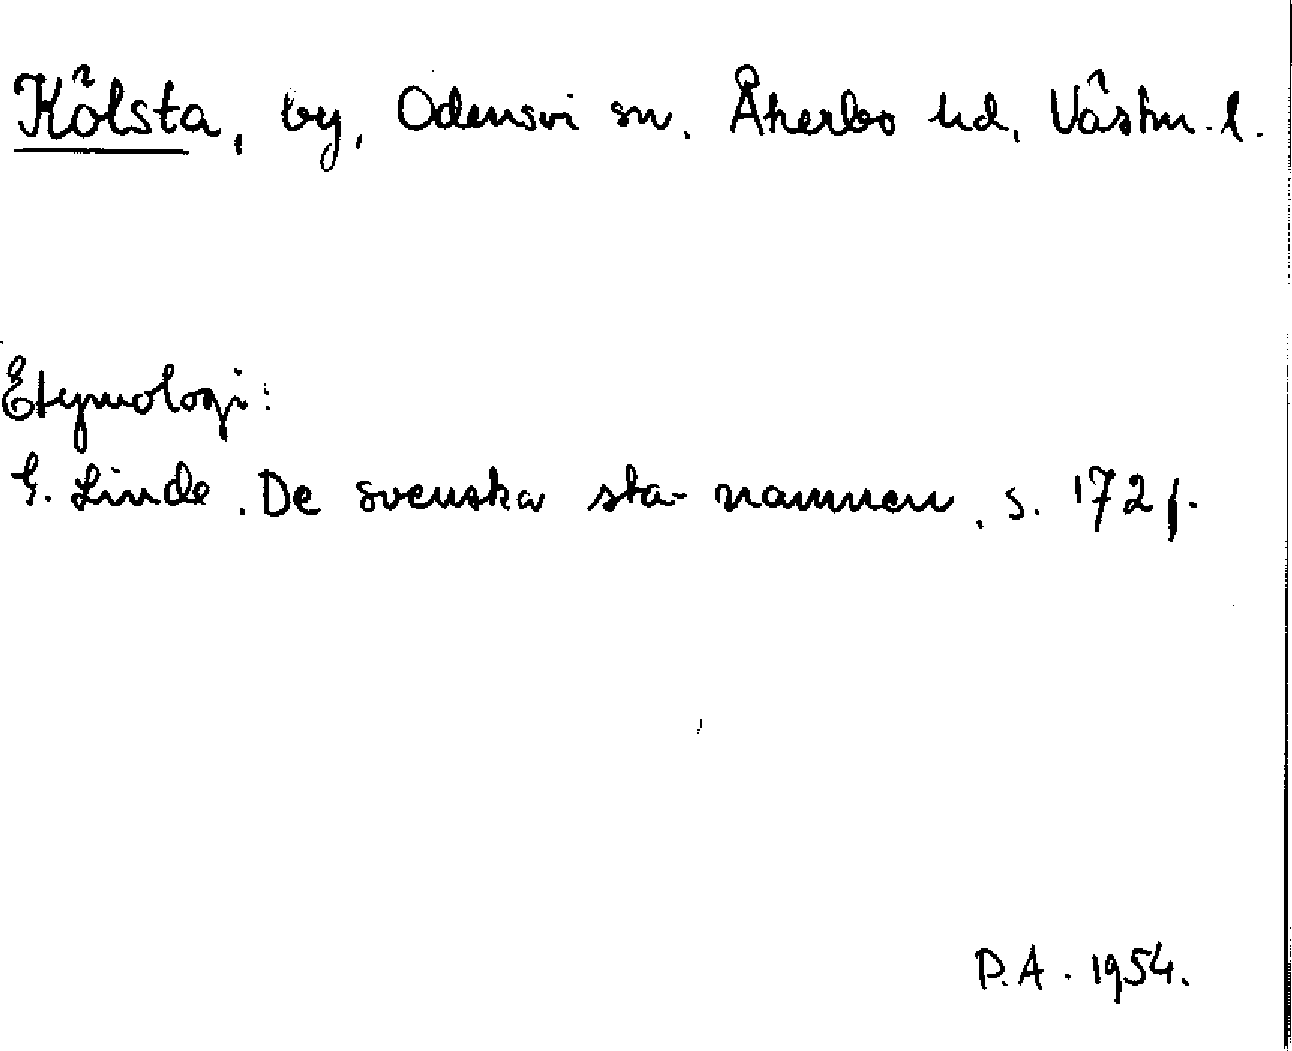 Kölsta, by, Odensvi sn. Åkerbo hd, Västm. l.
Etymologi:
G. Linde. De svenska sta-namnen. s. 172 f.
P.A. 1954.